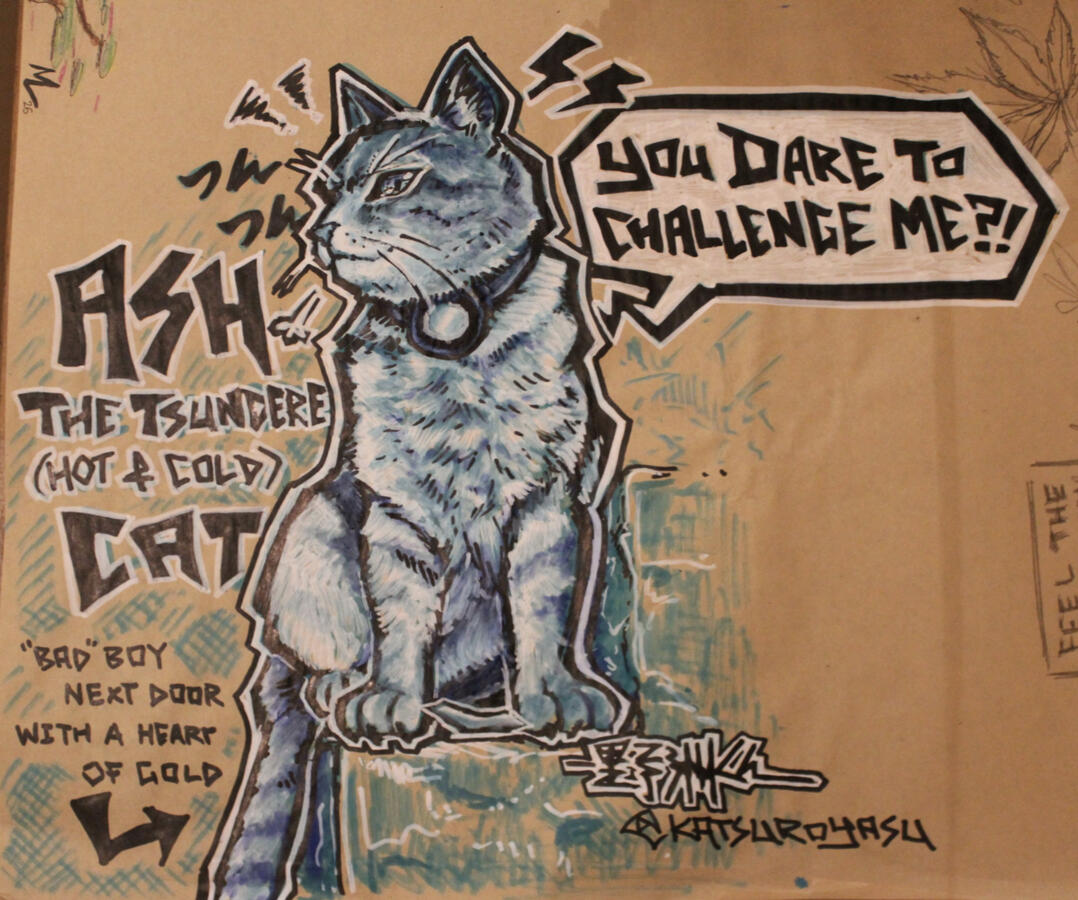 YOU DARE TO
CHALLENGE ME?!
つん
つん
ASH
THE TSUNDERE
(HOT & COLD)
CAT
"BAD" BOY
NEXT DOOR
WITH A HEART
OF GOLD
@KATSUROYASU
FEEL THE